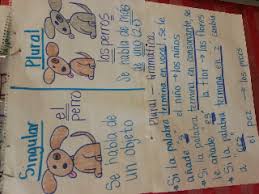 Singular
el
perro
Se habla de
un objeto
Plural
los perros
Se habla de más
de uno (2)
Plural - Gramática
* Si la palabra termina en vocal, se le
añade s el niño → los niños
* Si la palabra termina en consonante, se
le añade es la flor → las flores
* Si la palabra termina en z cambia
a ces el pez → los peces